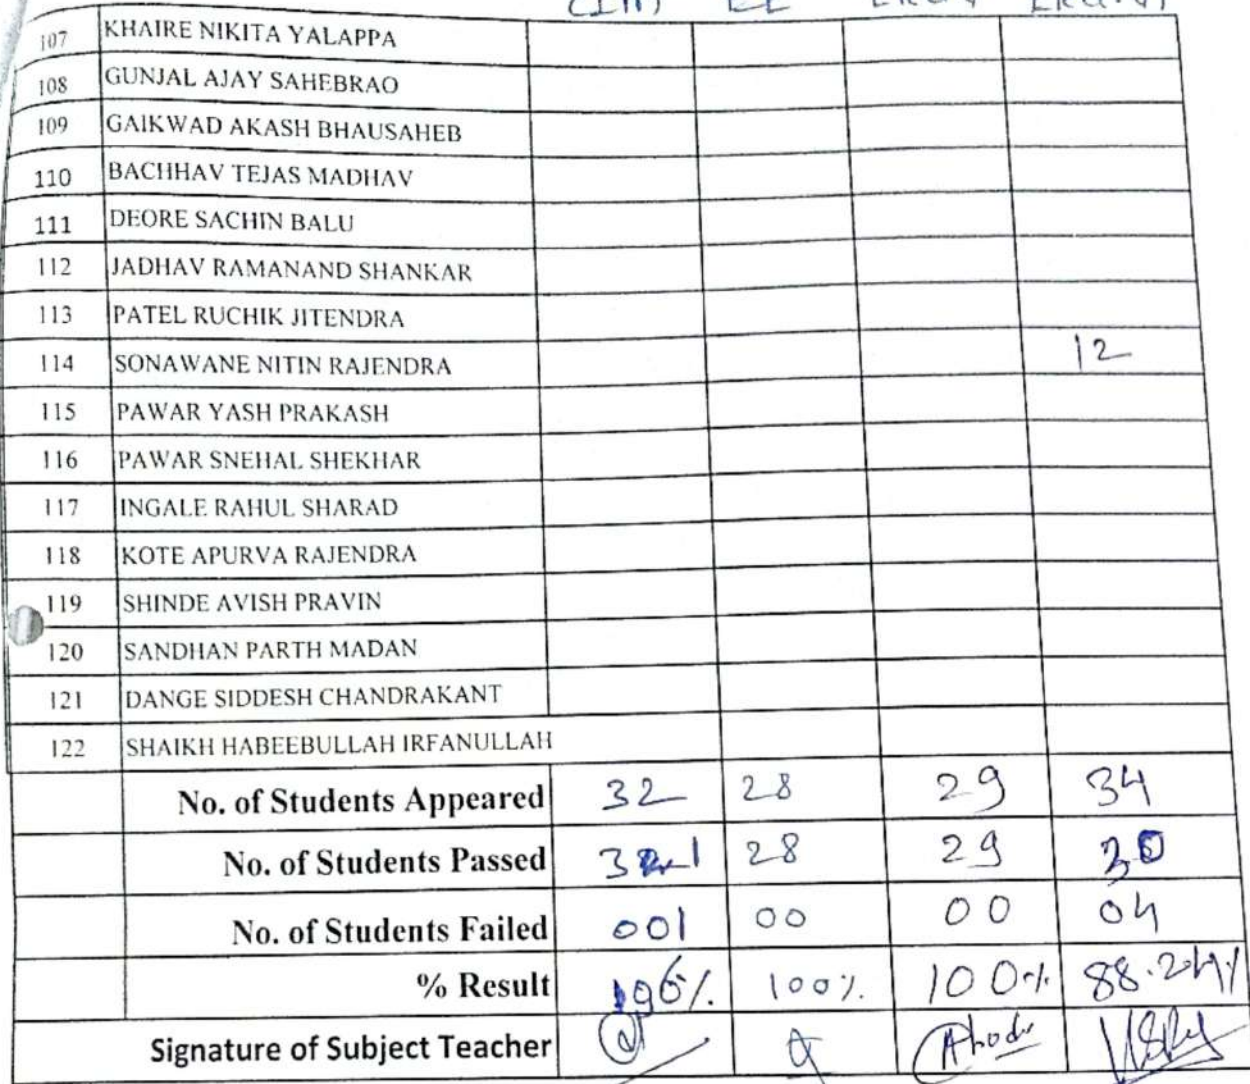 107 KHAIRE NIKITA YALAPPA
108 GUNJAL AJAY SAHEBRAO
109 GAIKWAD AKASH BHAUSAHEB
110 BACHHAV TEJAS MADHAV
111 DEORE SACHIN BALU
112 JADHAV RAMANAND SHANKAR
113 PATEL RUCHIK JITENDRA
114 SONAWANE NITIN RAJENDRA 12
115 PAWAR YASH PRAKASH
116 PAWAR SNEHAL SHEKHAR
117 INGALE RAHUL SHARAD
118 KOTE APURVA RAJENDRA
119 SHINDE AVISH PRAVIN
120 SANDHAN PARTH MADAN
121 DANGE SIDDESH CHANDRAKANT
122 SHAIKH HABEEBULLAH IRFANULLAH
No. of Students Appeared 32 28 29 34
No. of Students Passed 28 29 30
No. of Students Failed 001 00 00 04
% Result 100% 100% 88.24%
Signature of Subject Teacher